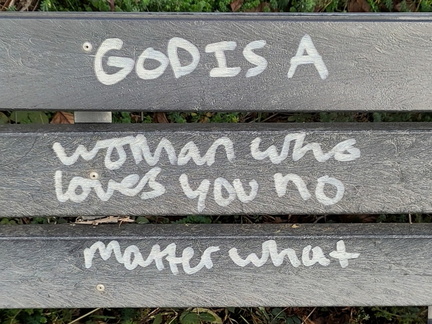 GOD IS A
woman who
loves you no
matter what